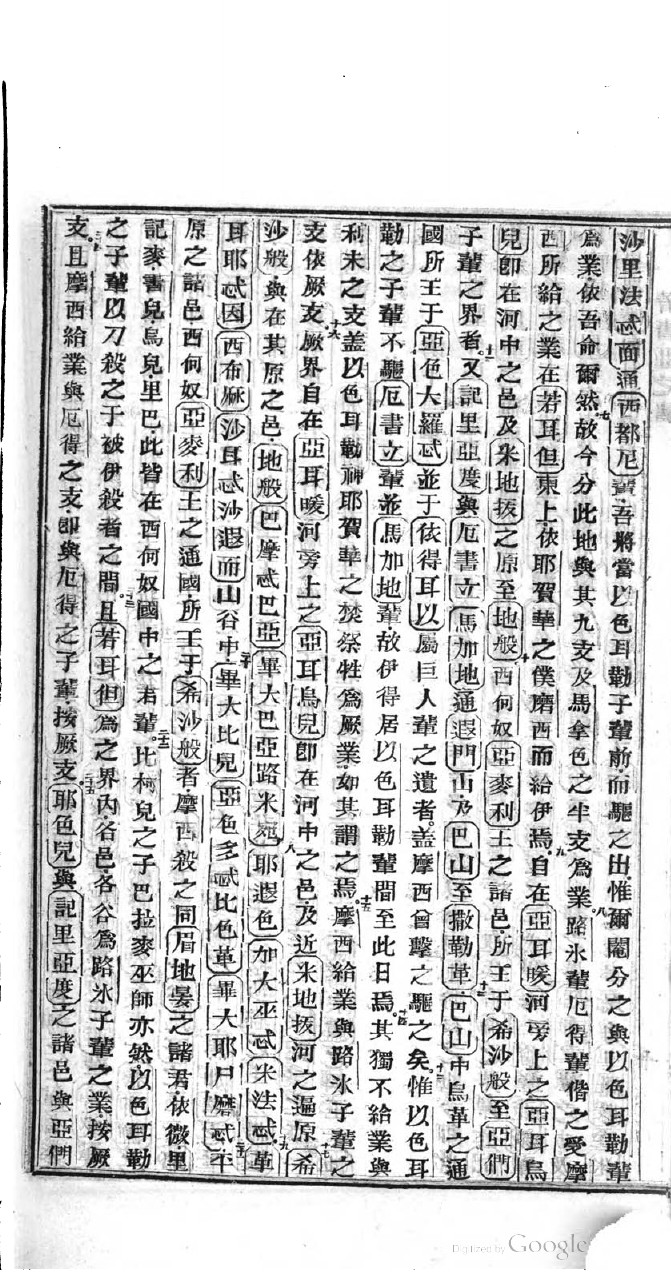 沙里法忒面通西都尼輩吾將當以色耳勒子輩前而驅之出惟爾鬮分之與以色耳勒輩
為業依吾命爾然七故今分此地與其九支及馬拿色之半支為業八路氷輩厄得輩偕之受摩
西所給之業在若耳但東上依耶賀華之僕摩西而給伊焉九自在亞耳暖河旁上之亞耳烏
兒即在河中之邑及米地拔之原至地般十西何奴亞麥利王之諸邑所王于希沙般至亞們
子輩之界者十一又記里亞度與厄書立馬加地通遐門山及巴山至撒勒革十二巴山中烏革之通
國所王于亞色大羅忒並于依得耳以屬巨人輩之遺者蓋摩西曾擊之驅之矣十三惟以色耳
勒之子輩不驅厄書立輩並馬加地輩故伊得居以色耳勒輩間至此日焉十四其獨不給業與
利未之支蓋以色耳勒神耶賀華之焚祭牲為厥業如其謂之焉十五摩西給業與路氷子輩之
支依厥支十六厥界自在亞耳暖河旁上之亞耳烏兒即在河中之邑及近米地拔河之遍原十七希
沙般與在其原之邑地般巴摩忒巴亞畢大巴亞路米宛十八耶遐色加大巫忒米法忒十九革
耳耶忒因西布麻沙耳忒沙遐而山谷中二十畢大比兒亞色多忒比色革畢大耶尸磨忒二十一平
原之諸邑西何奴亞麥利王之通國所王于希沙般者摩西殺之同眉地晏之諸君依微里
記麥書兒烏兒里巴此皆在西何奴國中之君輩二十二比柯兒之子巴拉麥巫師亦然以色耳勒
之子輩以刀殺之于被伊殺者之間二十三且若耳但為之界內各邑各谷為路氷子輩之業按厥
支二十四且摩西給業與厄得之支即與厄得之子輩按厥支二十五耶色兒與記里亞度之諸邑與亞們
Digitized by Google